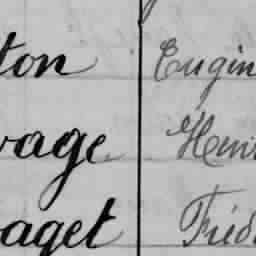 ton Eugin
vage Henr
aget Fréd